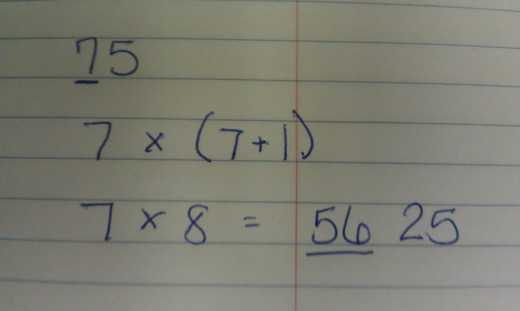 75
7 × (7+1)
7 × 8 = 56 25